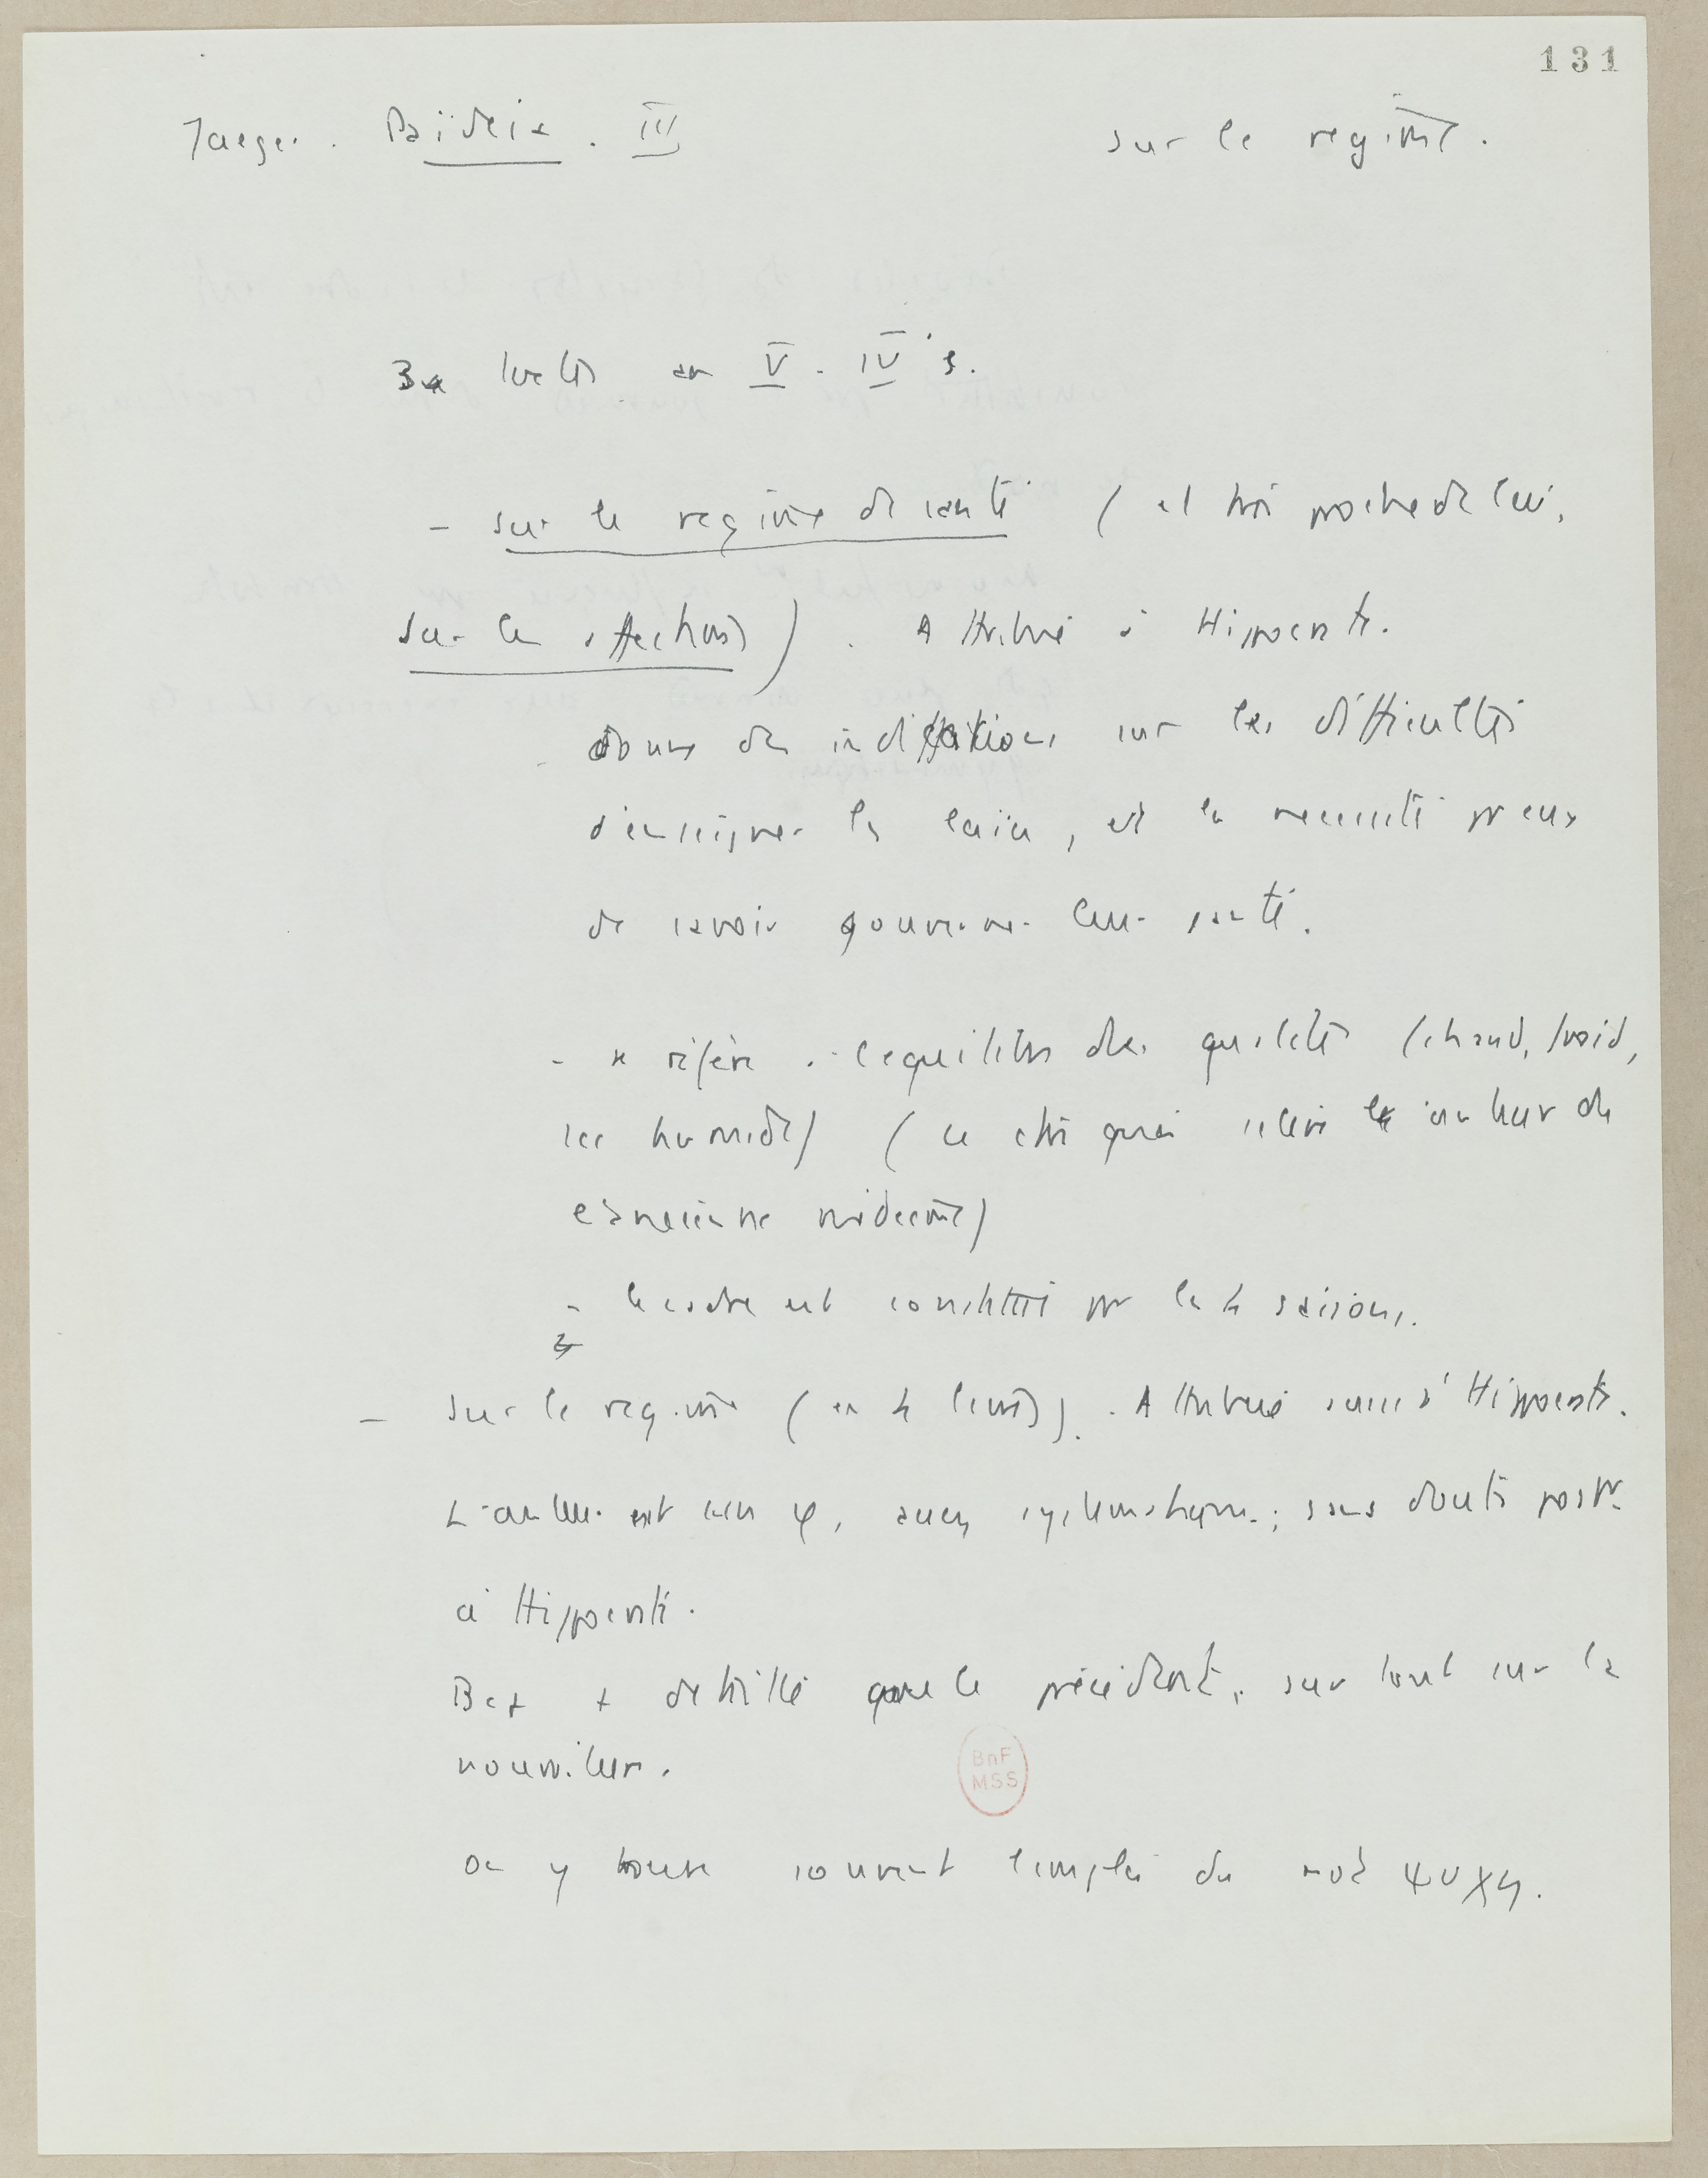 131
Jaeger. Païdeia. III
sur le regime.
3 traités au V - IV s.
- sur le regime de santé (et très proche de lui,
sur les affections). Attribué à Hippocrate.
donne des indications sur les difficultés
d'enseigner les laïcs, et la necessité pr eux
de savoir gouverner leur santé.
- se réfère à l'equilibre des qualités (chaud, froid,
sec humide) (ce
ancienne médecine)
- le cadre est constitué par les 4 saisons.
- Sur le regime (en 4 livres). Attribué aussi à Hippocrate.
L'auteur est un φ, assez systematique ; sans doute postr
à Hippocrate.
Bcp + detaillé que le précédent, surtout sur la
nourriture.
On y trouve souvent l'emploi du mot ψυχή.
BnF
MSS